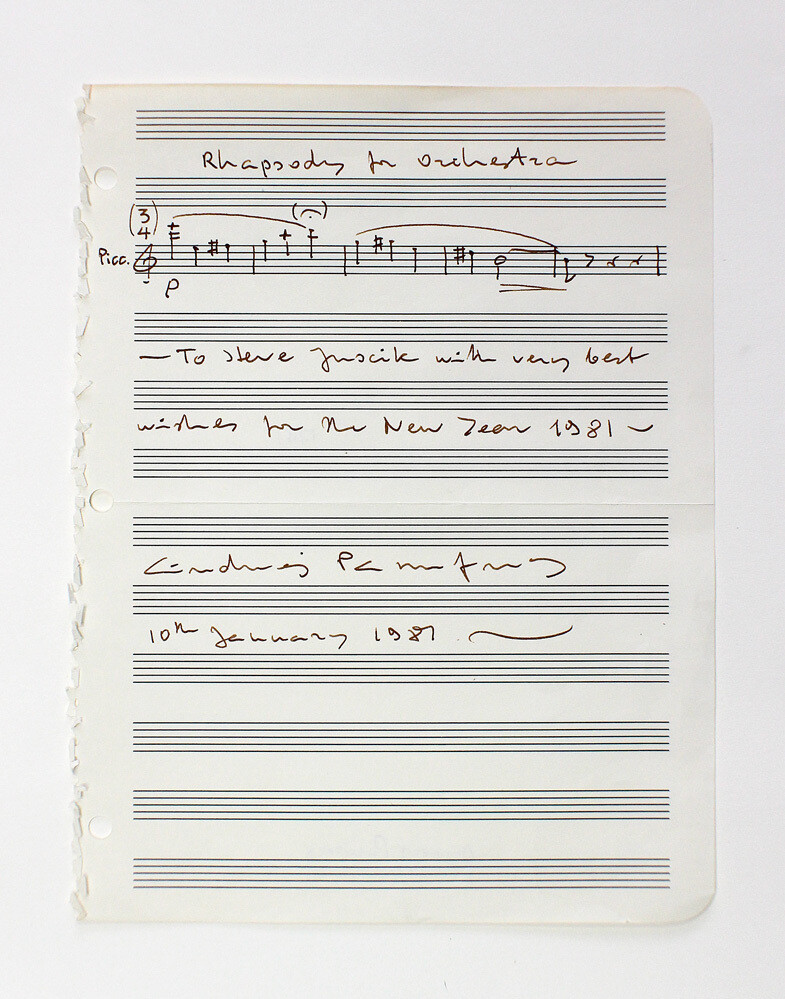 Rhapsody for Orchestra
(3/4)
Picc.
p
— To Steve Juscik with very best
wishes for the New Year 1981 ~
Andrzej Panufnik
10th January 1981